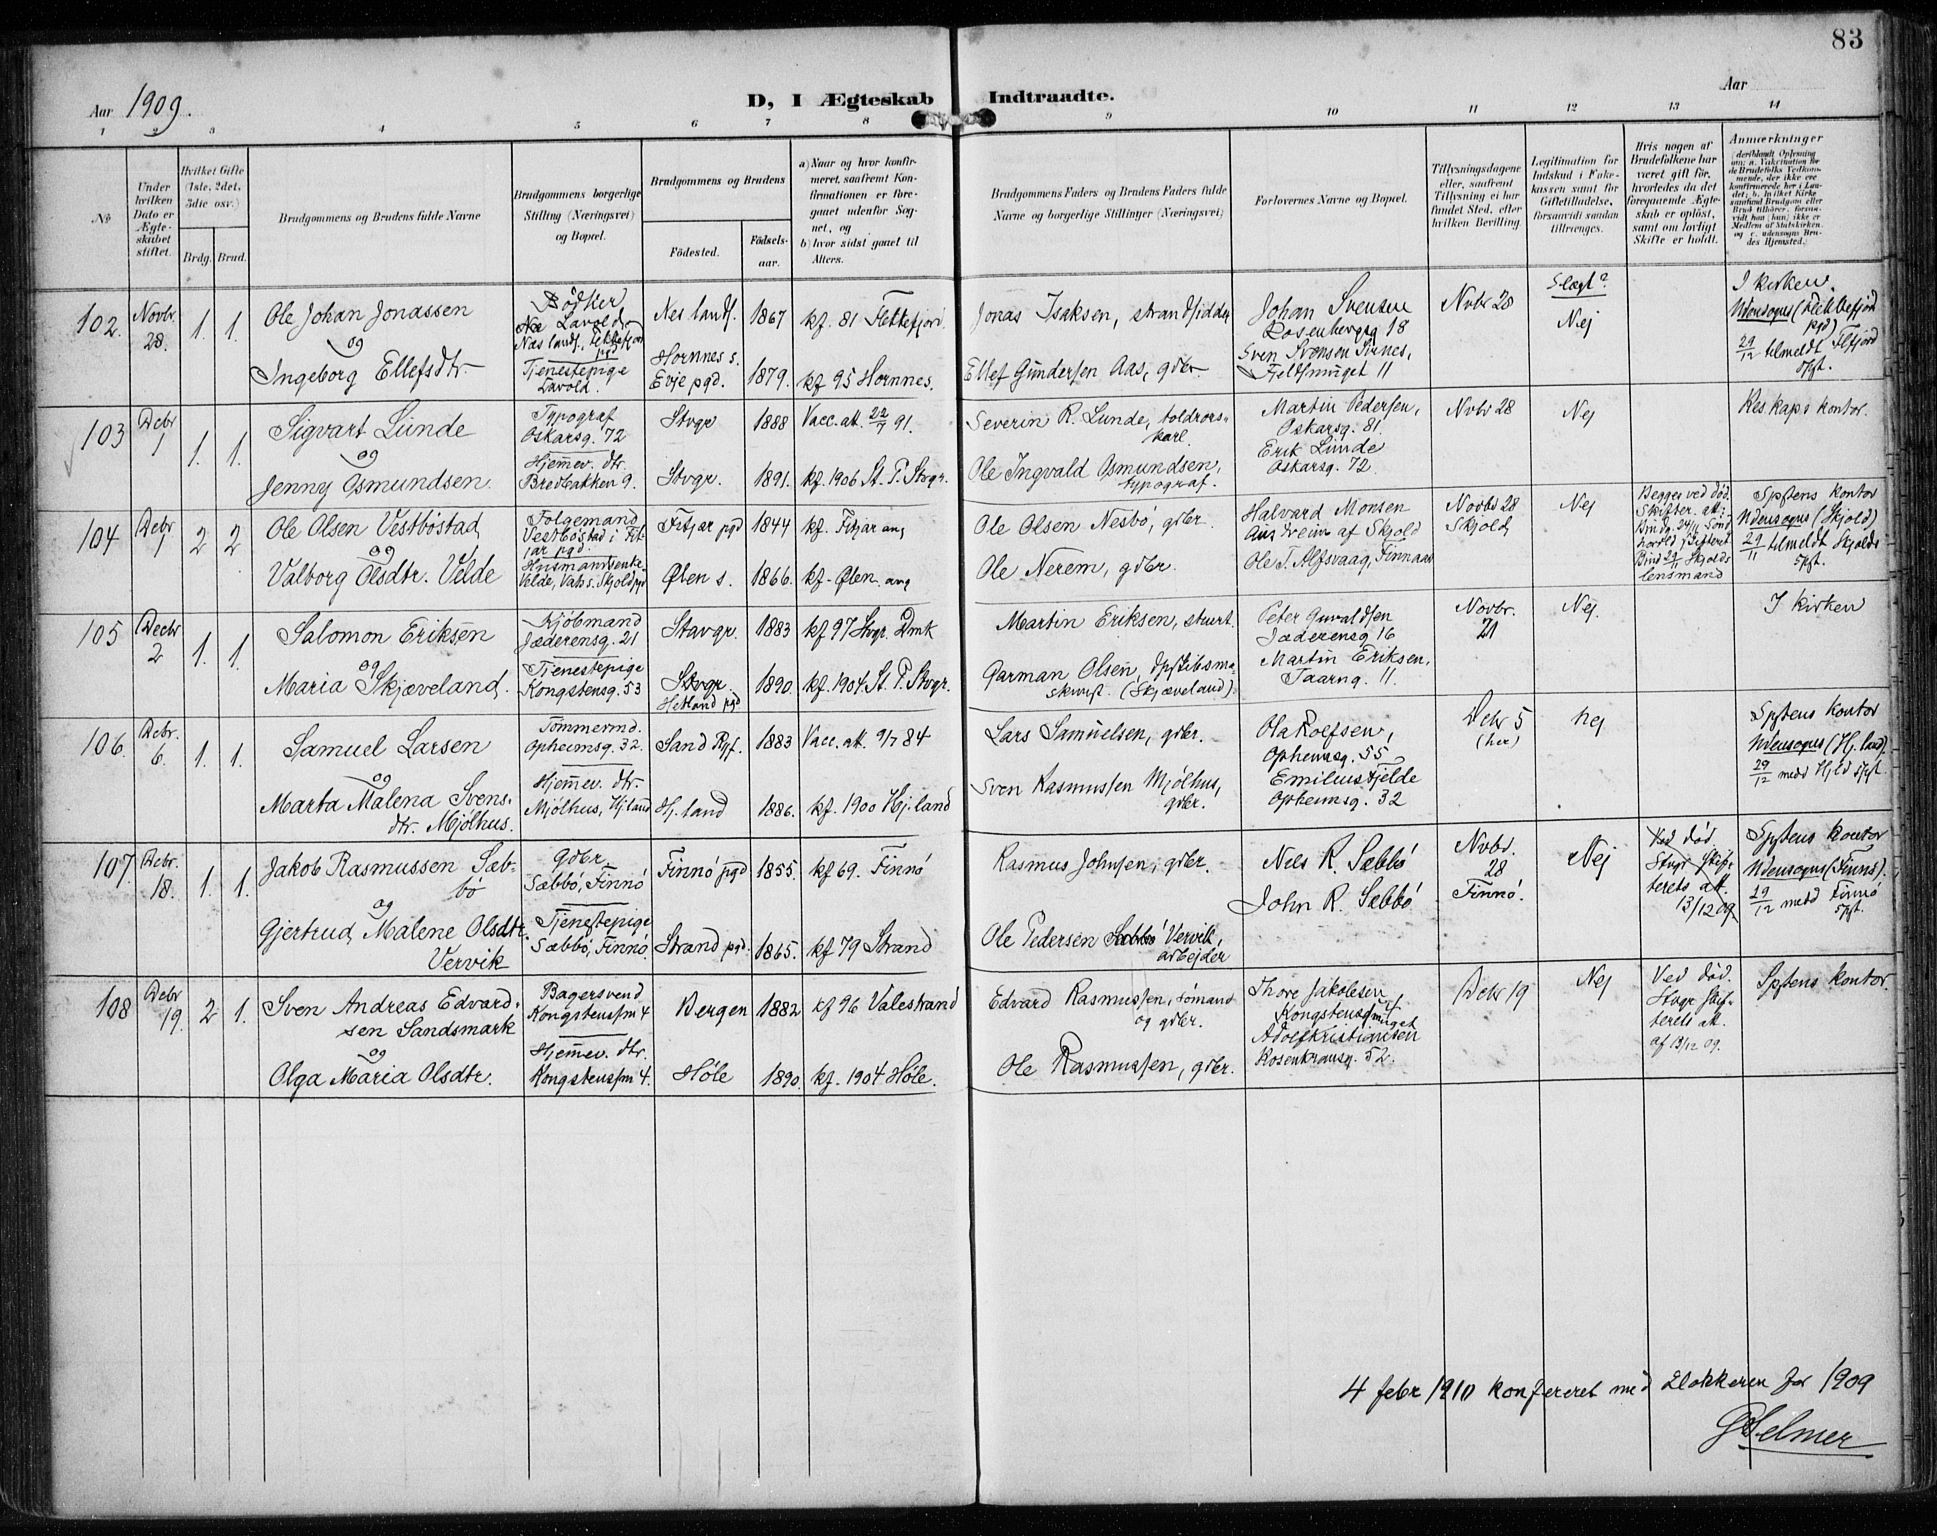 83
Aar 1909.
D, I Ægteskab Indtraadte.
Aar
1 2 3 4 5 6 7 8 9 10 11 12 13 14
No
Under hvilken Dato er Ægteskabet stiftet.
Hvilket Gifte (1ste, 2det, 3die osv.)
Brdg. Brud.
Brudgommens og Brudens fulde Navne
Brudgommens borgerlige Stilling (Næringsvei) og Bopæl.
Brudgommens og Brudens
Födested.
Födselsaar.
a) Naar og hvor konfirmeret, saafremt Konfirmationen er foregaaet udenfor Sognet, og
b) hvor sidst gaaet til Alters.
Brudgommens Faders og Brudens Faders fulde Navne og borgerlige Stillinger (Næringsvei)
Forlovernes Navne og Bopæl.
Tillysningsdagene eller, saafremt Tillysning ei har fundet Sted, efter hvilken Bevilling.
Legitimation for Indskud i Enkekassen samt for Giftetilladelse, forsaavidt saadan tiltrænges.
Hvis nogen af Brudefolkene har været gift før, hvorledes da det foregaaende Ægteskab er oplöst, samt om lovligt Skifte er holdt.
Anmærkninger
102.
Novbr. 28.
1. 1.
Ole Johan Jonassen
og
Ingeborg Ellefsdtr
Bødker
Lavold
Næs lands.
Tjenestepige
Lavold.
Nes lands.
Hornnes s.
Evje pgd.
1867
1879.
kf. 81 Flekkefjord
kf 95 Hornnes.
Jonas Isaksen, strandsidder
Ellef Gundersen Aas, gdbr.
Johan Svensen
Rosenbergg 18
Sven Svensen
11
Nvbr 28
Slægt?
Nej
I kirken.
Udensogns (Flekkefjord pgd)
29/12 tilmeldt
spgt.
103
Debr 1
1. 1.
Sigvart Lunde
og
Jenny Osmundsen
Typograf
Oskarsg. 72
Hjemev. dtr.
Bredbakken 9.
Stvgr
Stvgr.
1888
1891.
Vacc. att. 22/7 91.
kf. 1906 St. P. Stvgr.
Severin R. Lunde, toldrorskarl.
Ole Ingvald Osmundsen, typograf.
Martin Pedersen,
Oskarsg. 81.
Erik Lunde
Oskarsg. 72.
Nvbr 28
Nej
Res kaps kontor.
104
Debr 1
2 2
Ole Olsen Vestböstad
og
Valborg Olsdtr. Velde
Folgemand
Vestböstad i Fitjar pgd.
Husmandsenke
Velde, Vats s. Skjold pgd
Fitjar pgd
Ølen s.
1844
1866.
kf. Fitjar ang
kf. Ølen. ang
Ole Olsen Nesbö, gdbr.
Ole Nerem, gdbr.
Halvard Monsen
af Skjold
Ole T. Alfsvaag, Finnaas
Novbr 28
Skjold
Nej
Begge ved död.
Skifter. att:
29/11 Skjolds
lensmand
Spstens kontor
Udensogns (Skjold)
29/11 tilmeldt Skjolds
spgt.
105
Decbr 2
1. 1.
Salomon Eriksen
og
Maria Skjæveland.
Kjöbmand
Jæderensg. 21
Tjenestepige
Kongstensg. 53
Stavgr.
Stvgr
Hetland pgd
1883
1890.
kf 97 Stvgr. Dmk
kf. 1904 St. P. Stvgr.
Martin Eriksen, stuert.
Garman Olsen,
(Skjæveland)
Peter Guvaldsen
Jæderensg 16
Martin Eriksen,
Taarng. 11.
Novbr. 21
Nej.
I kirken
106.
Debr. 6.
1. 1.
Samuel Larsen
og
Marta Malena Svensdtr. Mjölhus.
Tömmermd.
Opheimsg. 32.
Hjemev. dtr.
Mjölhus, Hjland
Sand Ryf.
Hj. land
1883
1886.
Vacc. att. 9/7 84
kf. 1900 Hj. land
Lars Samuelsen, gdbr.
Sven Rasmussen Mjölhus, gdbr.
Ola Roelfsen,
Opheimsg. 55
Emilius Fjelde
Opheimsg. 32
Debr 5
(her)
nej
Spstens kontor
Udensogns (Hj. land).
29/12 medd Hjld spgt
107.
Debr. 18.
1. 1.
Jakob Rasmussen Sæbbö
og
Gjertrud Malene Olsdtr. Vervik
Gdbr.
Sæbbö, Finnö
Tjenestepige
Sæbbö, Finnö.
Finnö pgd
Strand pgd.
1855.
1865.
kf 69. Finnö
kf 79 Strand
Rasmus Johnsen, gdbr.
Ole Pedersen Sæbbö Vervik, arbejder
Nels R. Sæbbö
John R. Sæbbö
Nvbr. 28
Finnö.
Nej
Ved död
Stvgr skifterets att.
13/12 09
Spstens kontor
Udensogns (Finnö).
29/12 medd Finnö
spgt.
108
Debr 19.
2 1.
Sven Andreas Edvardsen Sandsmark
og
Olga Maria Olsdtr.
Bagersvend
Kongstenssm 4
Hjemev. dtr.
Kongstenssm 4.
Bergen
Höle
1882
1890.
kf 96 Valestrand
kf. 1904 Höle.
Edvard Rasmussen, sömand
og gdbr.
Ole Rasmussen, gdbr.
Thore Jakobsen
Kongstenssmuget
Adolf Kristiansen
Rosenkransg. 52.
Debr 19
Nej
Ved död.
Stvgr skifterets att.
af 13/12 09.
Spstens kontor.
4 febr 1910 konfereret med klokkeren for 1909
GHelmer